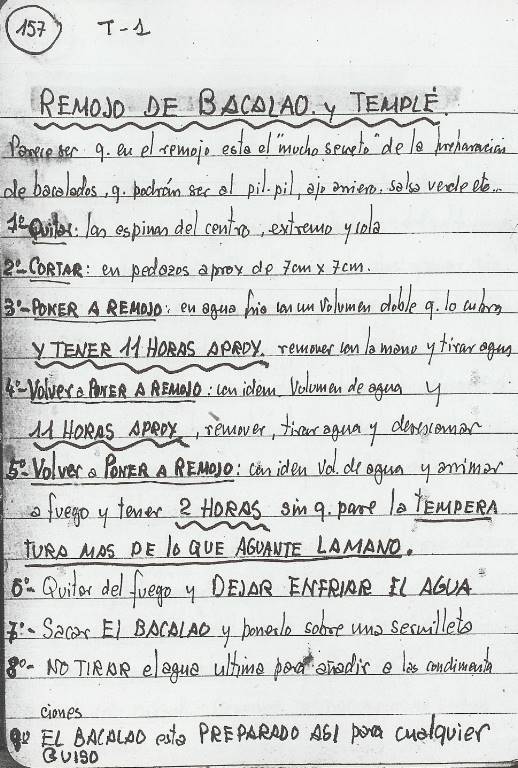 157 T-1
REMOJO DE BACALAO y TEMPLÉ
Parece ser q. en el remojo esta el "mucho secreto" de la preparación
de bacalados, q. podrán ser al pil-pil, ajo arriero, salsa verde etc...
1º- Quitar: las espinas del centro, extremo y cola
2º- CORTAR: en pedazos aprox de 7cm x 7cm.
3º- PONER A REMOJO: en agua fria con un Volumen doble q. lo cubra
Y TENER 11 HORAS APROX. remover con la mano y tirar agua
4º- Volver a PONER A REMOJO: con idem Volumen de agua y
11 HORAS APROX, remover, tirar agua y desescamar
5º- Volver a PONER A REMOJO: con iden Vol. de agua y arrimar
a fuego y tener 2 HORAS sin q. pase la TEMPERA
TURA MAS DE lo QUE AGUANTE LA MANO.
6º- Quitar del fuego y DEJAR ENFRIAR EL AGUA
7º- Sacar El BACALAO y ponerlo sobre una servilleta
8º- NO TIRAR el agua ultima para añadir a las condimenta
ciones
9º EL BACALAO esta PREPARADO ASI para cualquier
GUISO